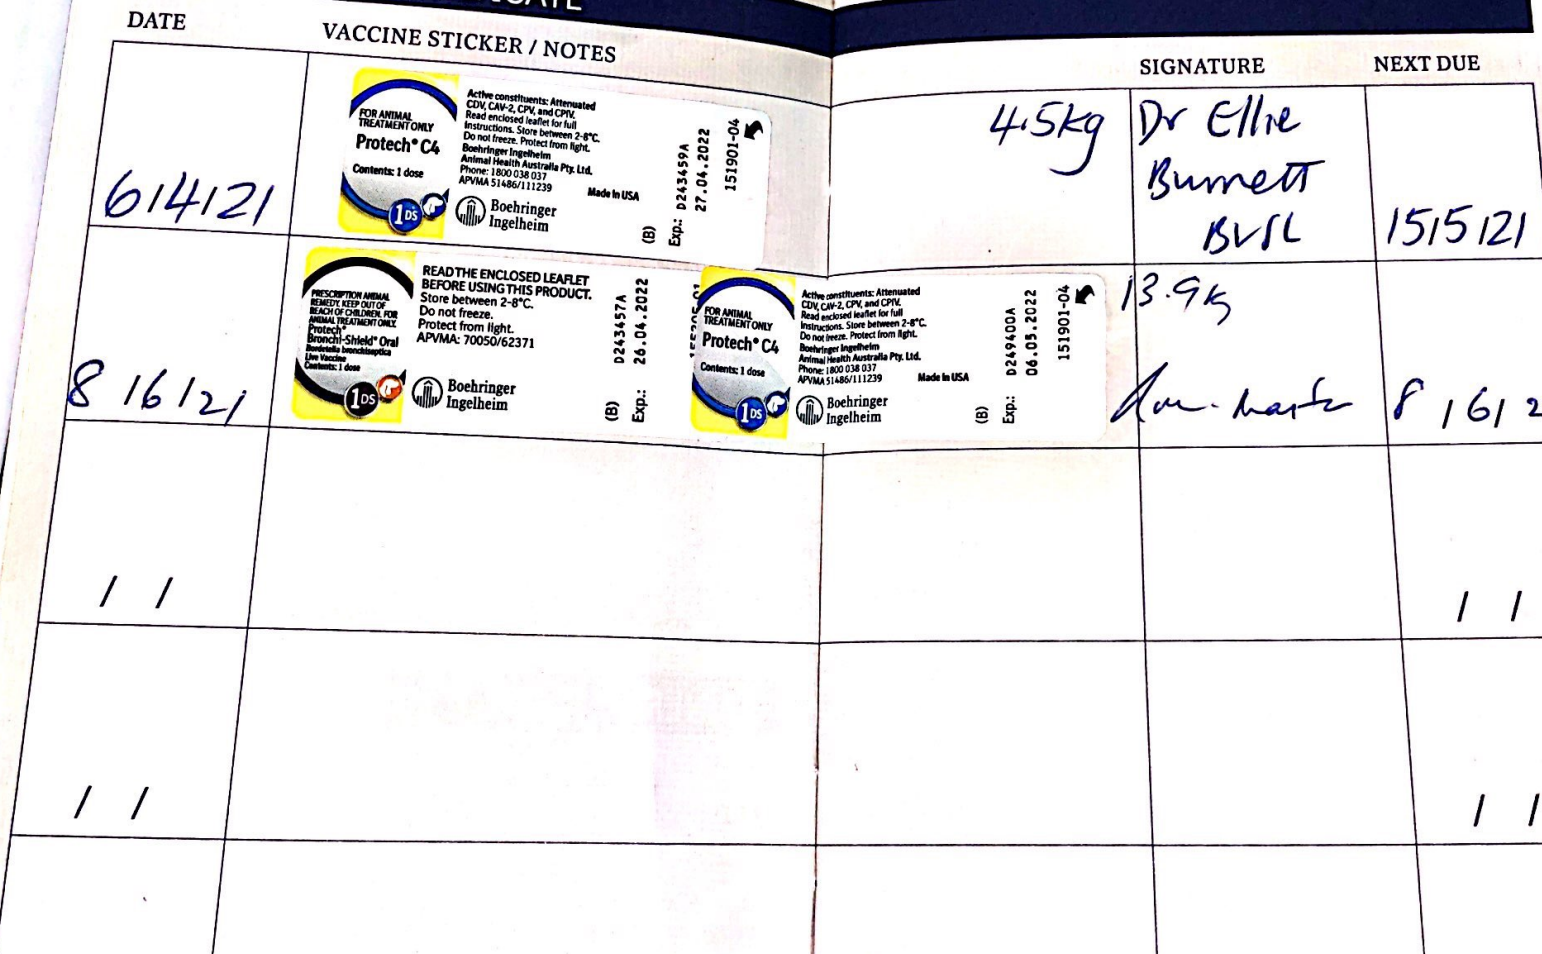 DATE
VACCINE STICKER / NOTES
SIGNATURE
NEXT DUE
6/4/21
FOR ANIMAL
TREATMENT ONLY
Protech® C4
Contents: 1 dose
1DS
Active constituents: Attenuated
CDV, CAV-2, CPV, and CPIV.
Read enclosed leaflet for full
Instructions. Store between 2-8°C.
Do not freeze. Protect from light.
Boehringer Ingelheim
Animal Health Australia Pty. Ltd.
Phone: 1800 038 037
APVMA 51486/111239
Made in USA
Boehringer
Ingelheim
(B)
Exp.:
D243459A
27.04.2022
151901-04
4.5kg
Dr Ellie
Burnett
BVSc
15/5/21
8/6/21
PRESCRIPTION ANIMAL
REMEDY. KEEP OUT OF
REACH OF CHILDREN. FOR
ANIMAL TREATMENT ONLY.
Protech®
Bronchi-Shield® Oral
Bordetella bronchiseptica
Live Vaccine
Contents: 1 dose
1DS
READ THE ENCLOSED LEAFLET
BEFORE USING THIS PRODUCT.
Store between 2-8°C.
Do not freeze.
Protect from light.
APVMA: 70050/62371
Boehringer
Ingelheim
(B)
Exp.:
D243457A
26.04.2022
FOR ANIMAL
TREATMENT ONLY
Protech® C4
Contents: 1 dose
1DS
Active constituents: Attenuated
CDV, CAV-2, CPV, and CPIV.
Read enclosed leaflet for full
Instructions. Store between 2-8°C.
Do not freeze. Protect from light.
Boehringer Ingelheim
Animal Health Australia Pty. Ltd.
Phone: 1800 038 037
APVMA 51486/111239
Made in USA
Boehringer
Ingelheim
(B)
Exp.:
D249400A
06.05.2022
151901-04
13.9kg
8/6/2
/ /
/ /
/ /
/ /